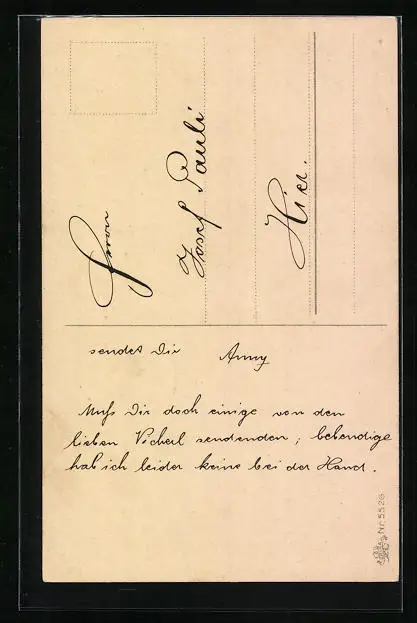 Herrn
Josef Pauli
Hier.
sendet Dir Anny
Muß Dir doch einige von den
lieben Vicherl sendenden; lebendige
hab ich leider keine bei der Hand.
Nr. 5526